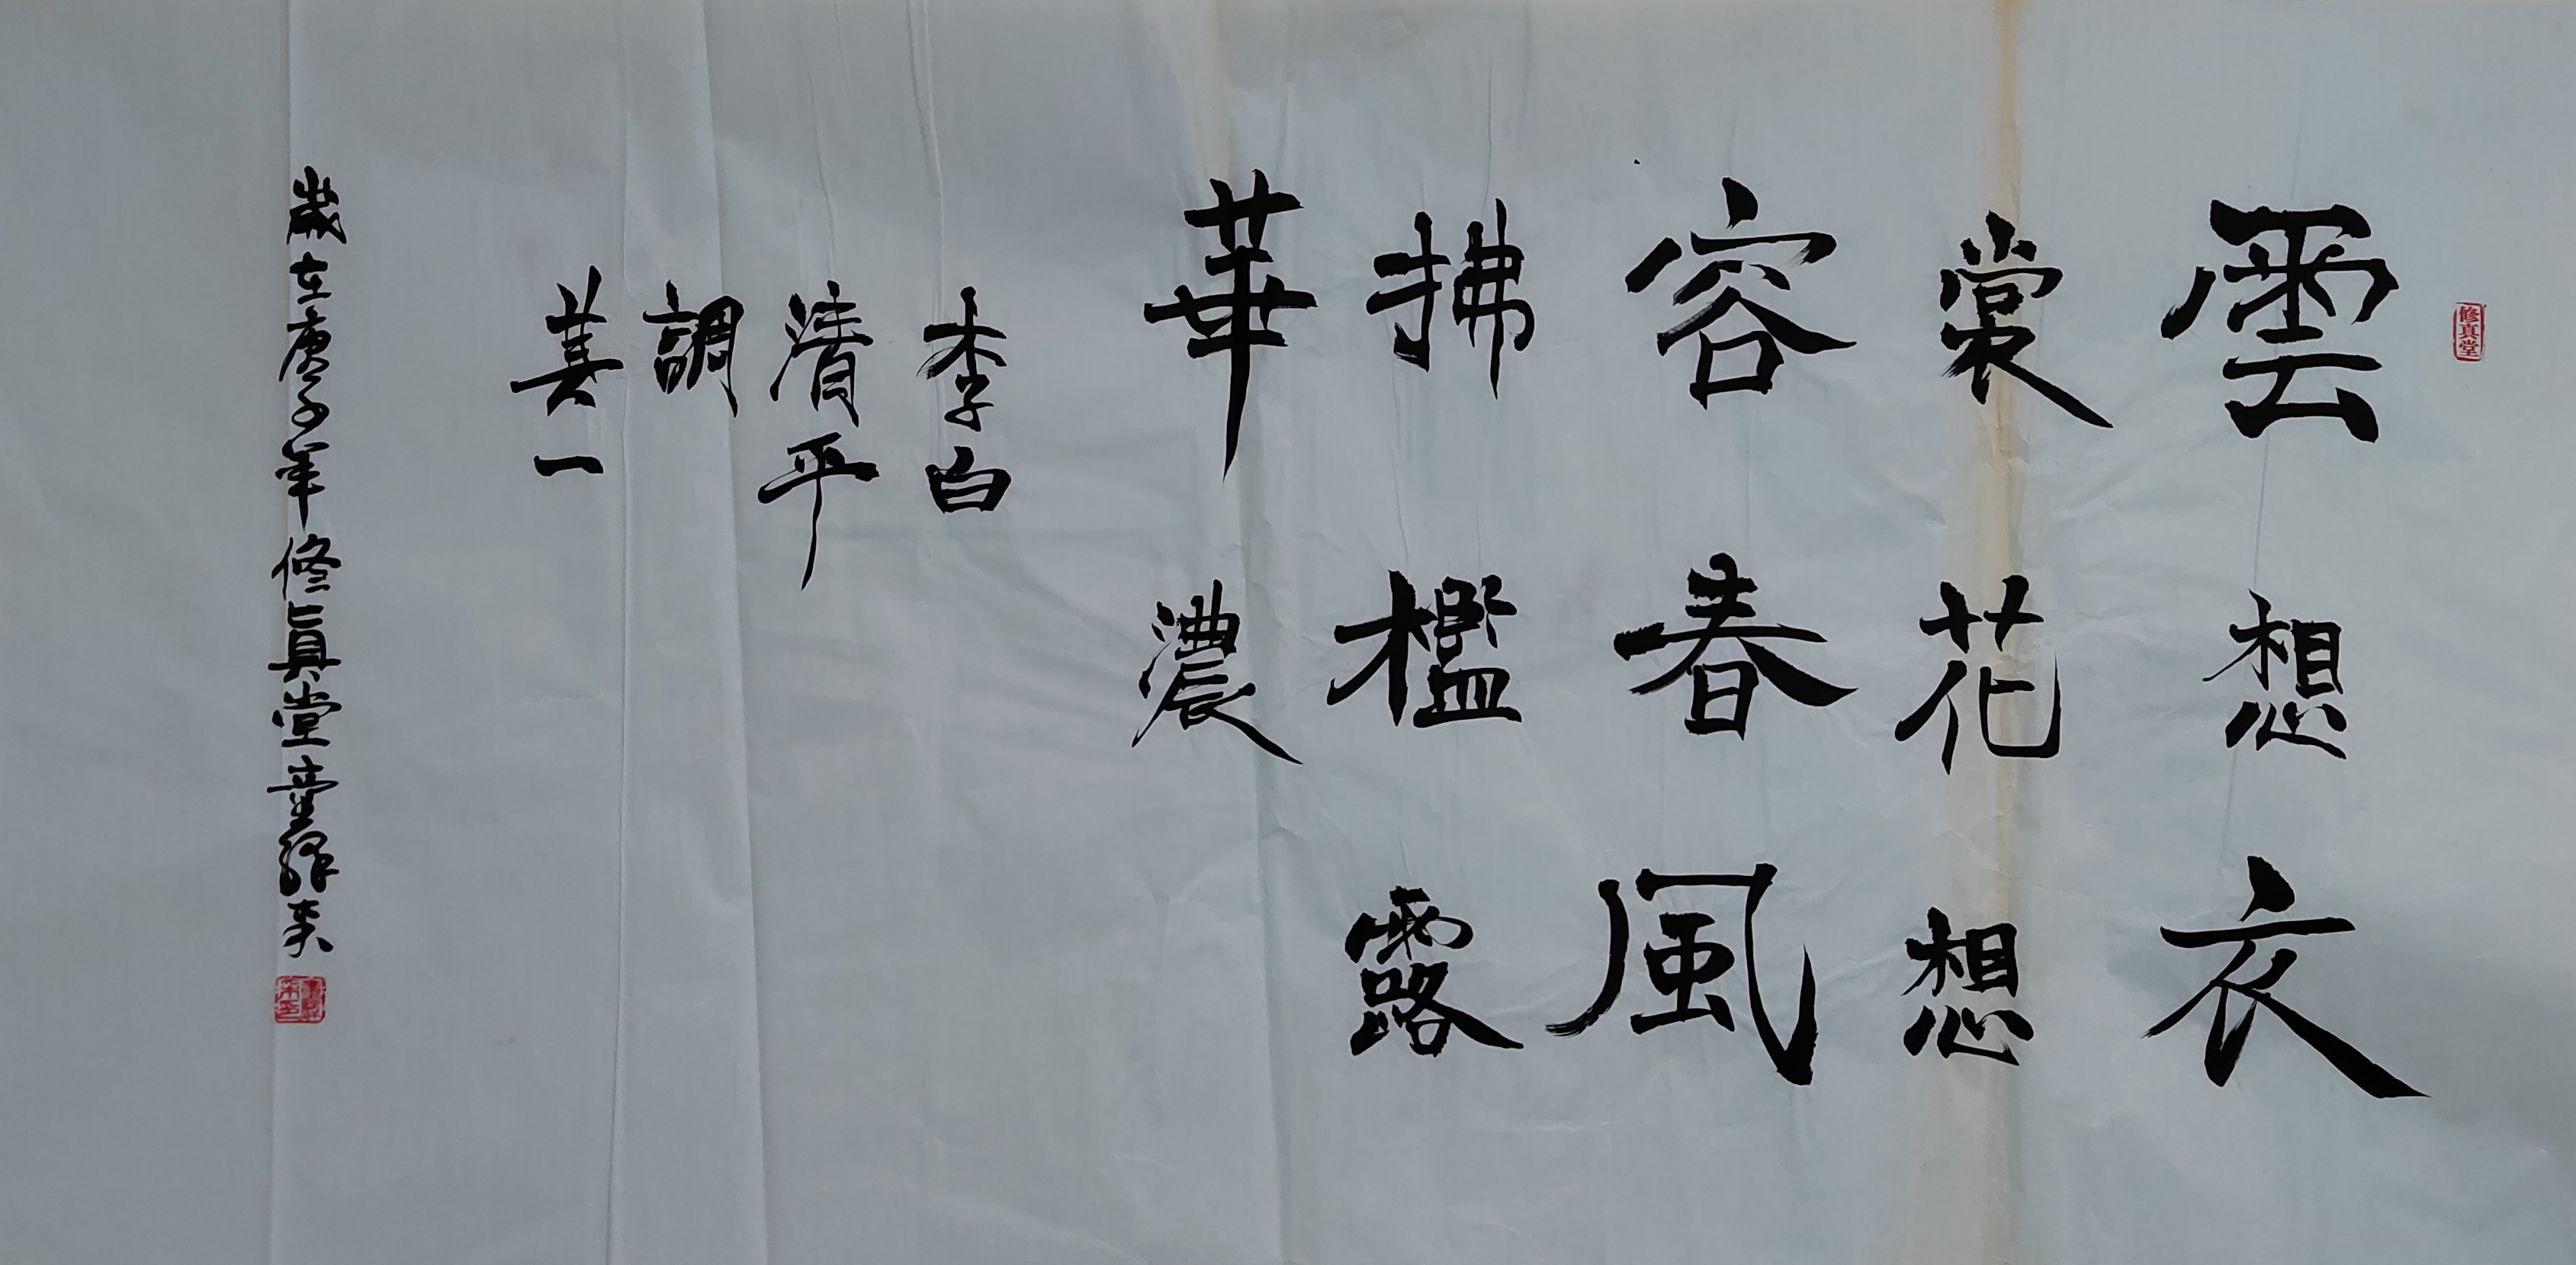 修真堂
雲想衣
裳花想
容春風
拂檻露
華濃
李白
清平
調
其一
歲在庚子年修真堂童釋來